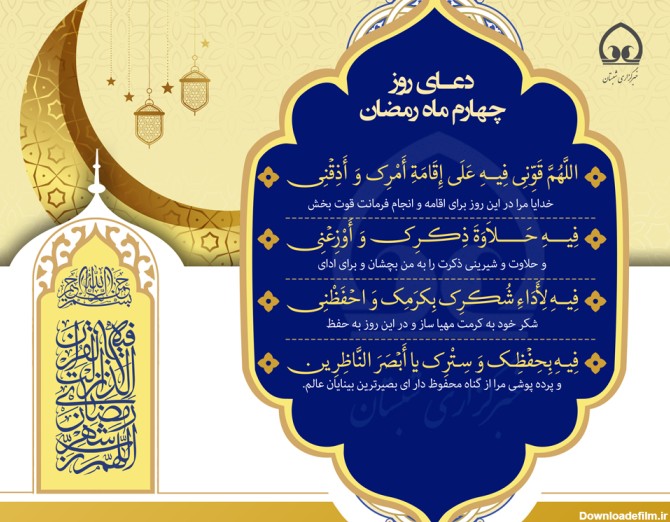 خبرگزاری شبستان
دعـای روز
چهارم ماه رمضان
اللَّهُمَّ قَوِّنِی فِیـهِ عَلَى إِقَامَةِ أَمْرِک وَ أَذِقْنِی
خدایا مرا در این روز برای اقامه و انجام فرمانت قوت بخش
فِیـهِ حَـلَاوَةَ ذِکْـرِک وَ أَوْزِعْنِی
و حلاوت و شیرینی ذکرت را به من بچشان و برای ادای
فِیـهِ لِأَدَاءِ شُـکْـرِک بِکَرَمِـکَ وَ احْفَظْنِی
شکر خود به کرمت مهیا ساز و در این روز به حفظ
فِیهِ بِحِفْظِـک وَ سِتْرِک یَا أَبْصَرَ النَّاظِرِین
و پرده پوشی مرا از گناه محفوظ دار ای بصیرترین بینایان عالم.
بسم الله الرحمن الرحیم
اللهم رب شهر رمضان الذی انزلت فیه القرآن
خبرگزاری شبستان
Downloadefilm.ir